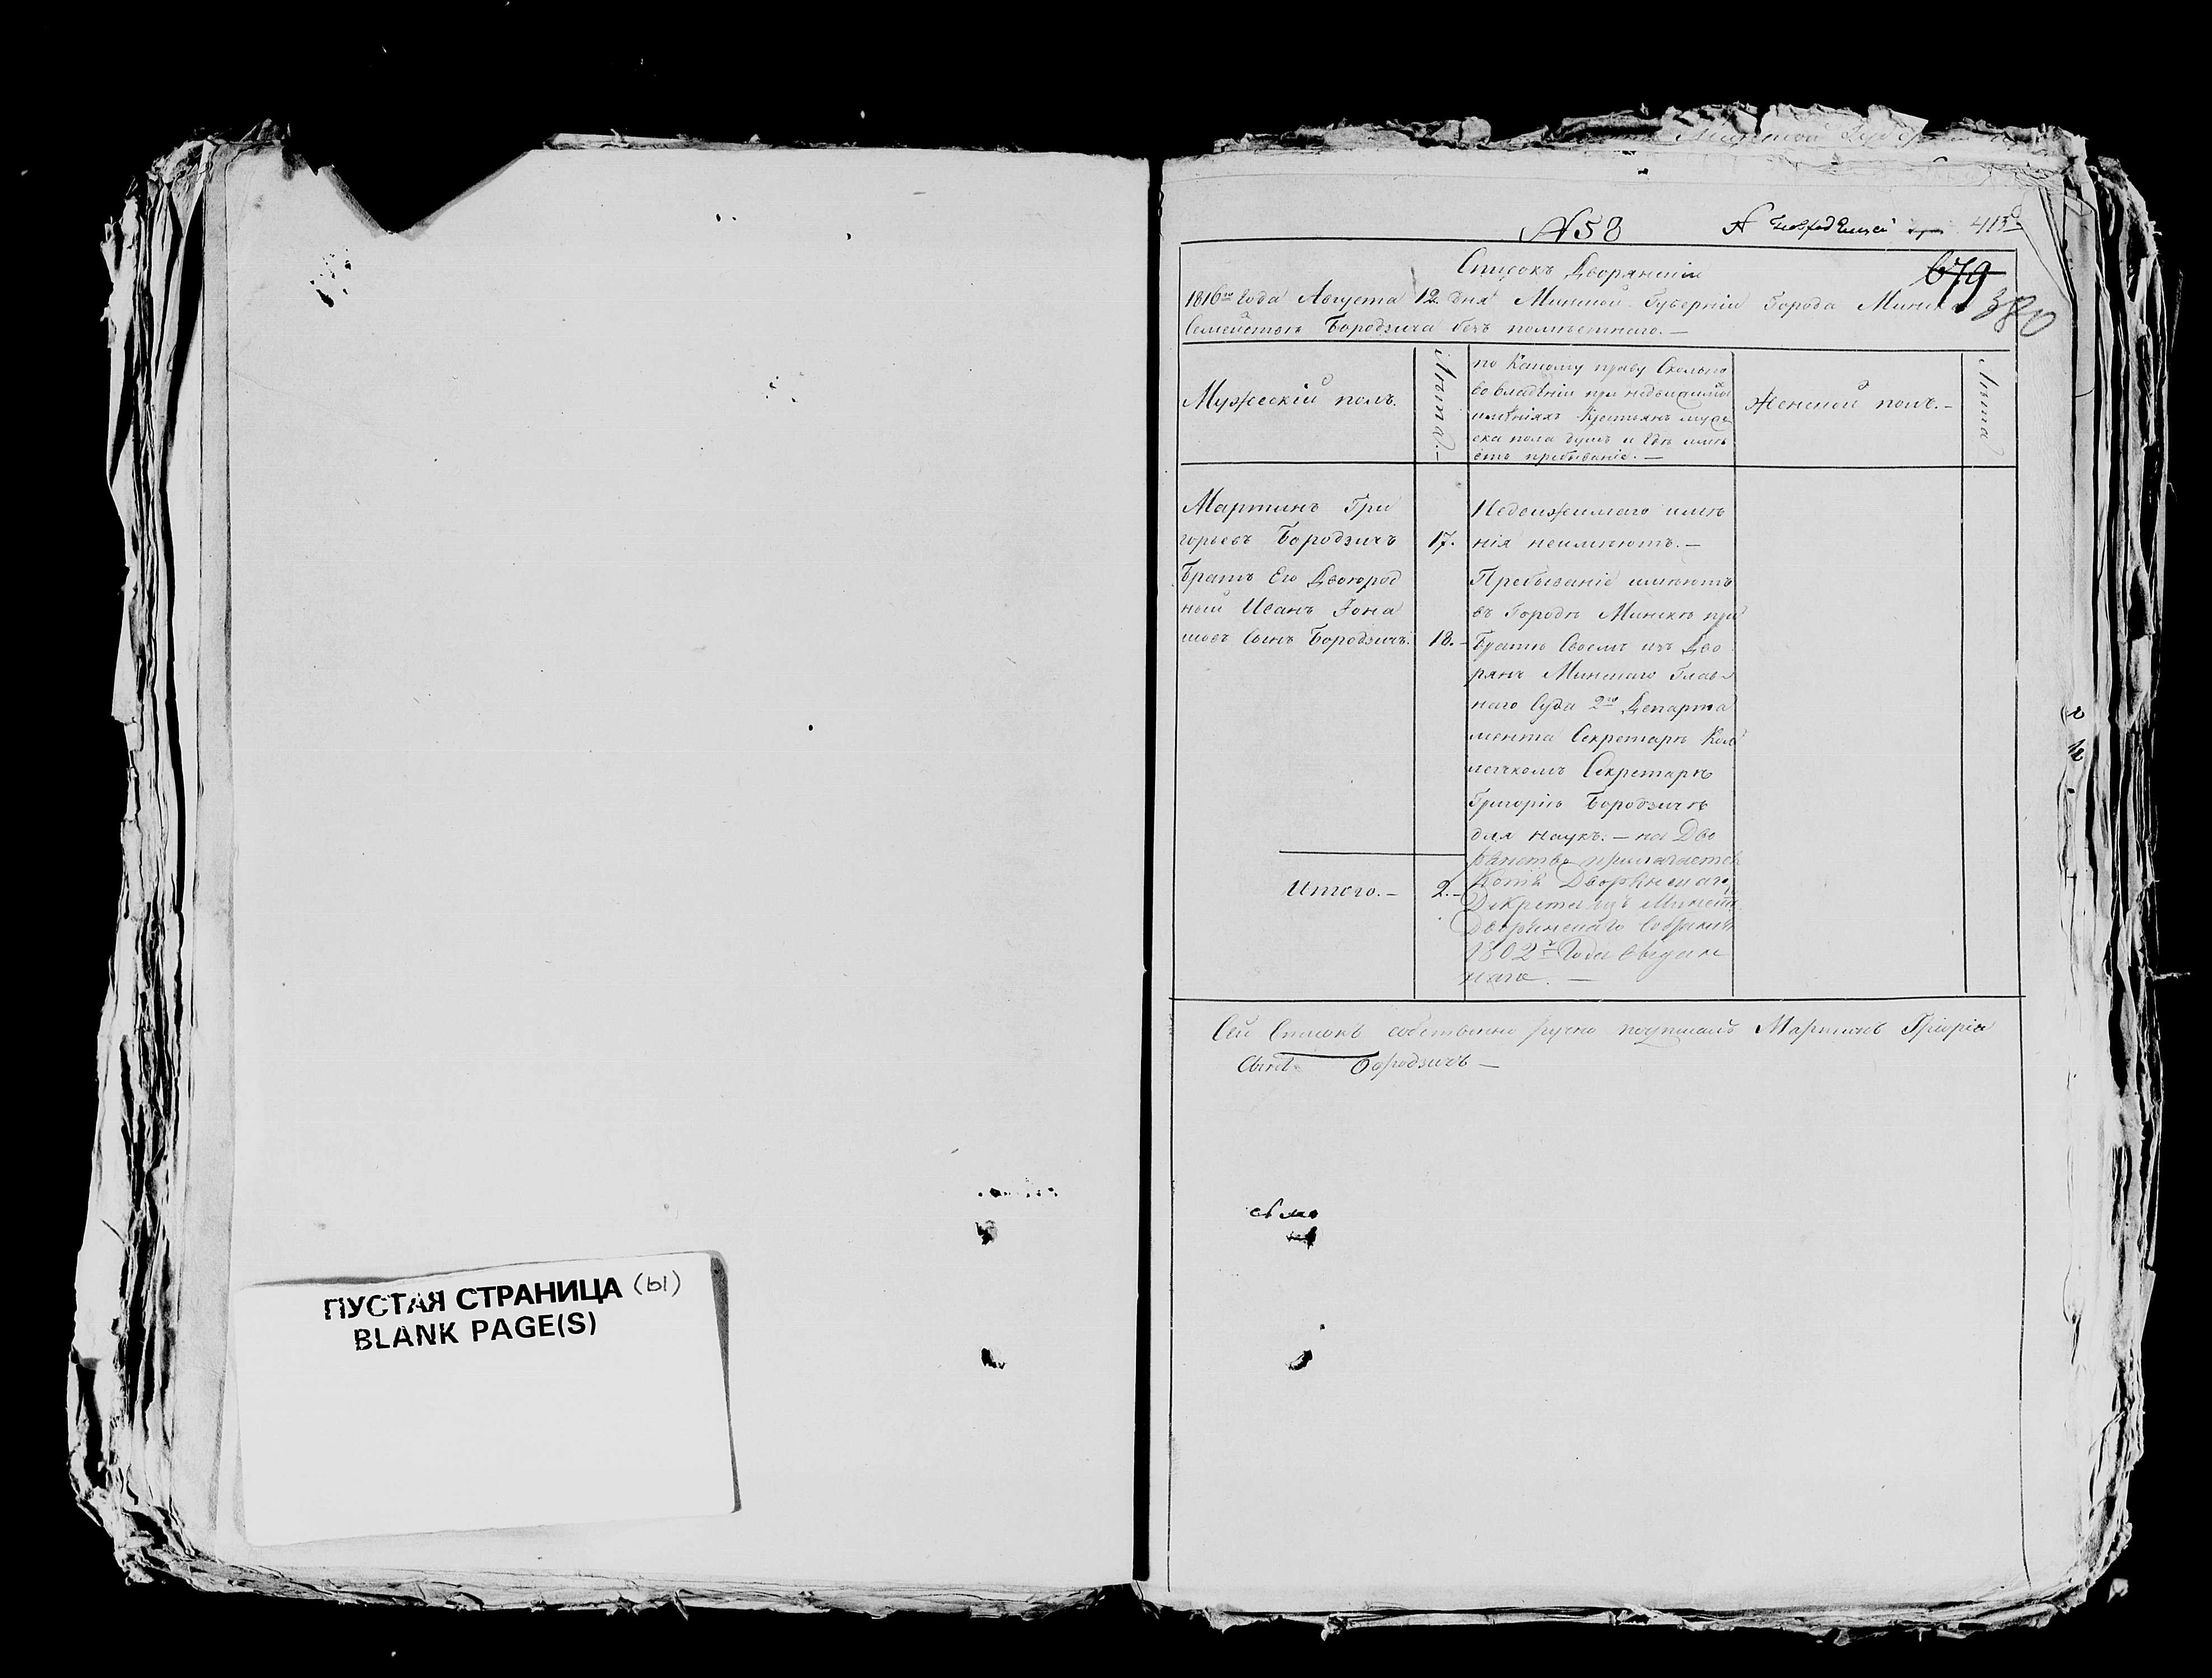 ПУСТАЯ СТРАНИЦА (ы)
BLANK PAGE(S)
Минской Губернии
№ 58
413
Списокъ Дворянскій
679
1816го Года Августа 12 дня Минской Губерніи Города Минска
380
Семейства Бородзича безъ помѣстнаго. —
Мужескій полъ.
Лѣта. —
по какому праву Сколько
во владѣніи при недвижимы
имѣніяхъ крестьянъ муже
ска пола душъ и гдѣ имѣ
етъ пребываніе. —
Женскій полъ. —
Лѣта
Мартинъ Гри
горьевъ Бородзичъ 17.
Братъ Его Двоюрод
ный Иванъ Іона
шовъ Сынъ Бородзичъ. 18. —
Недвижимаго имѣ
нія неимѣютъ. —
Пребываніе имѣютъ
въ Городѣ Минскѣ при
Братѣ Своемъ изъ Дво
рянъ Минскаго Глав
наго Суда 2го Департа
мента Секретарѣ Кол
лежскомъ Секретарѣ
Григоріѣ Бородзичѣ
для наукъ. — на Дво
рянство прилагается
Копія Дворянскаго
Декрета изъ Минск
Дворянскаго Собранія
1802го Года выдан
наго. —
Итого. — 2. —
Сей Списокъ собственно ручно подписалъ Мартинъ Григорія
Сынъ Бородзичъ —